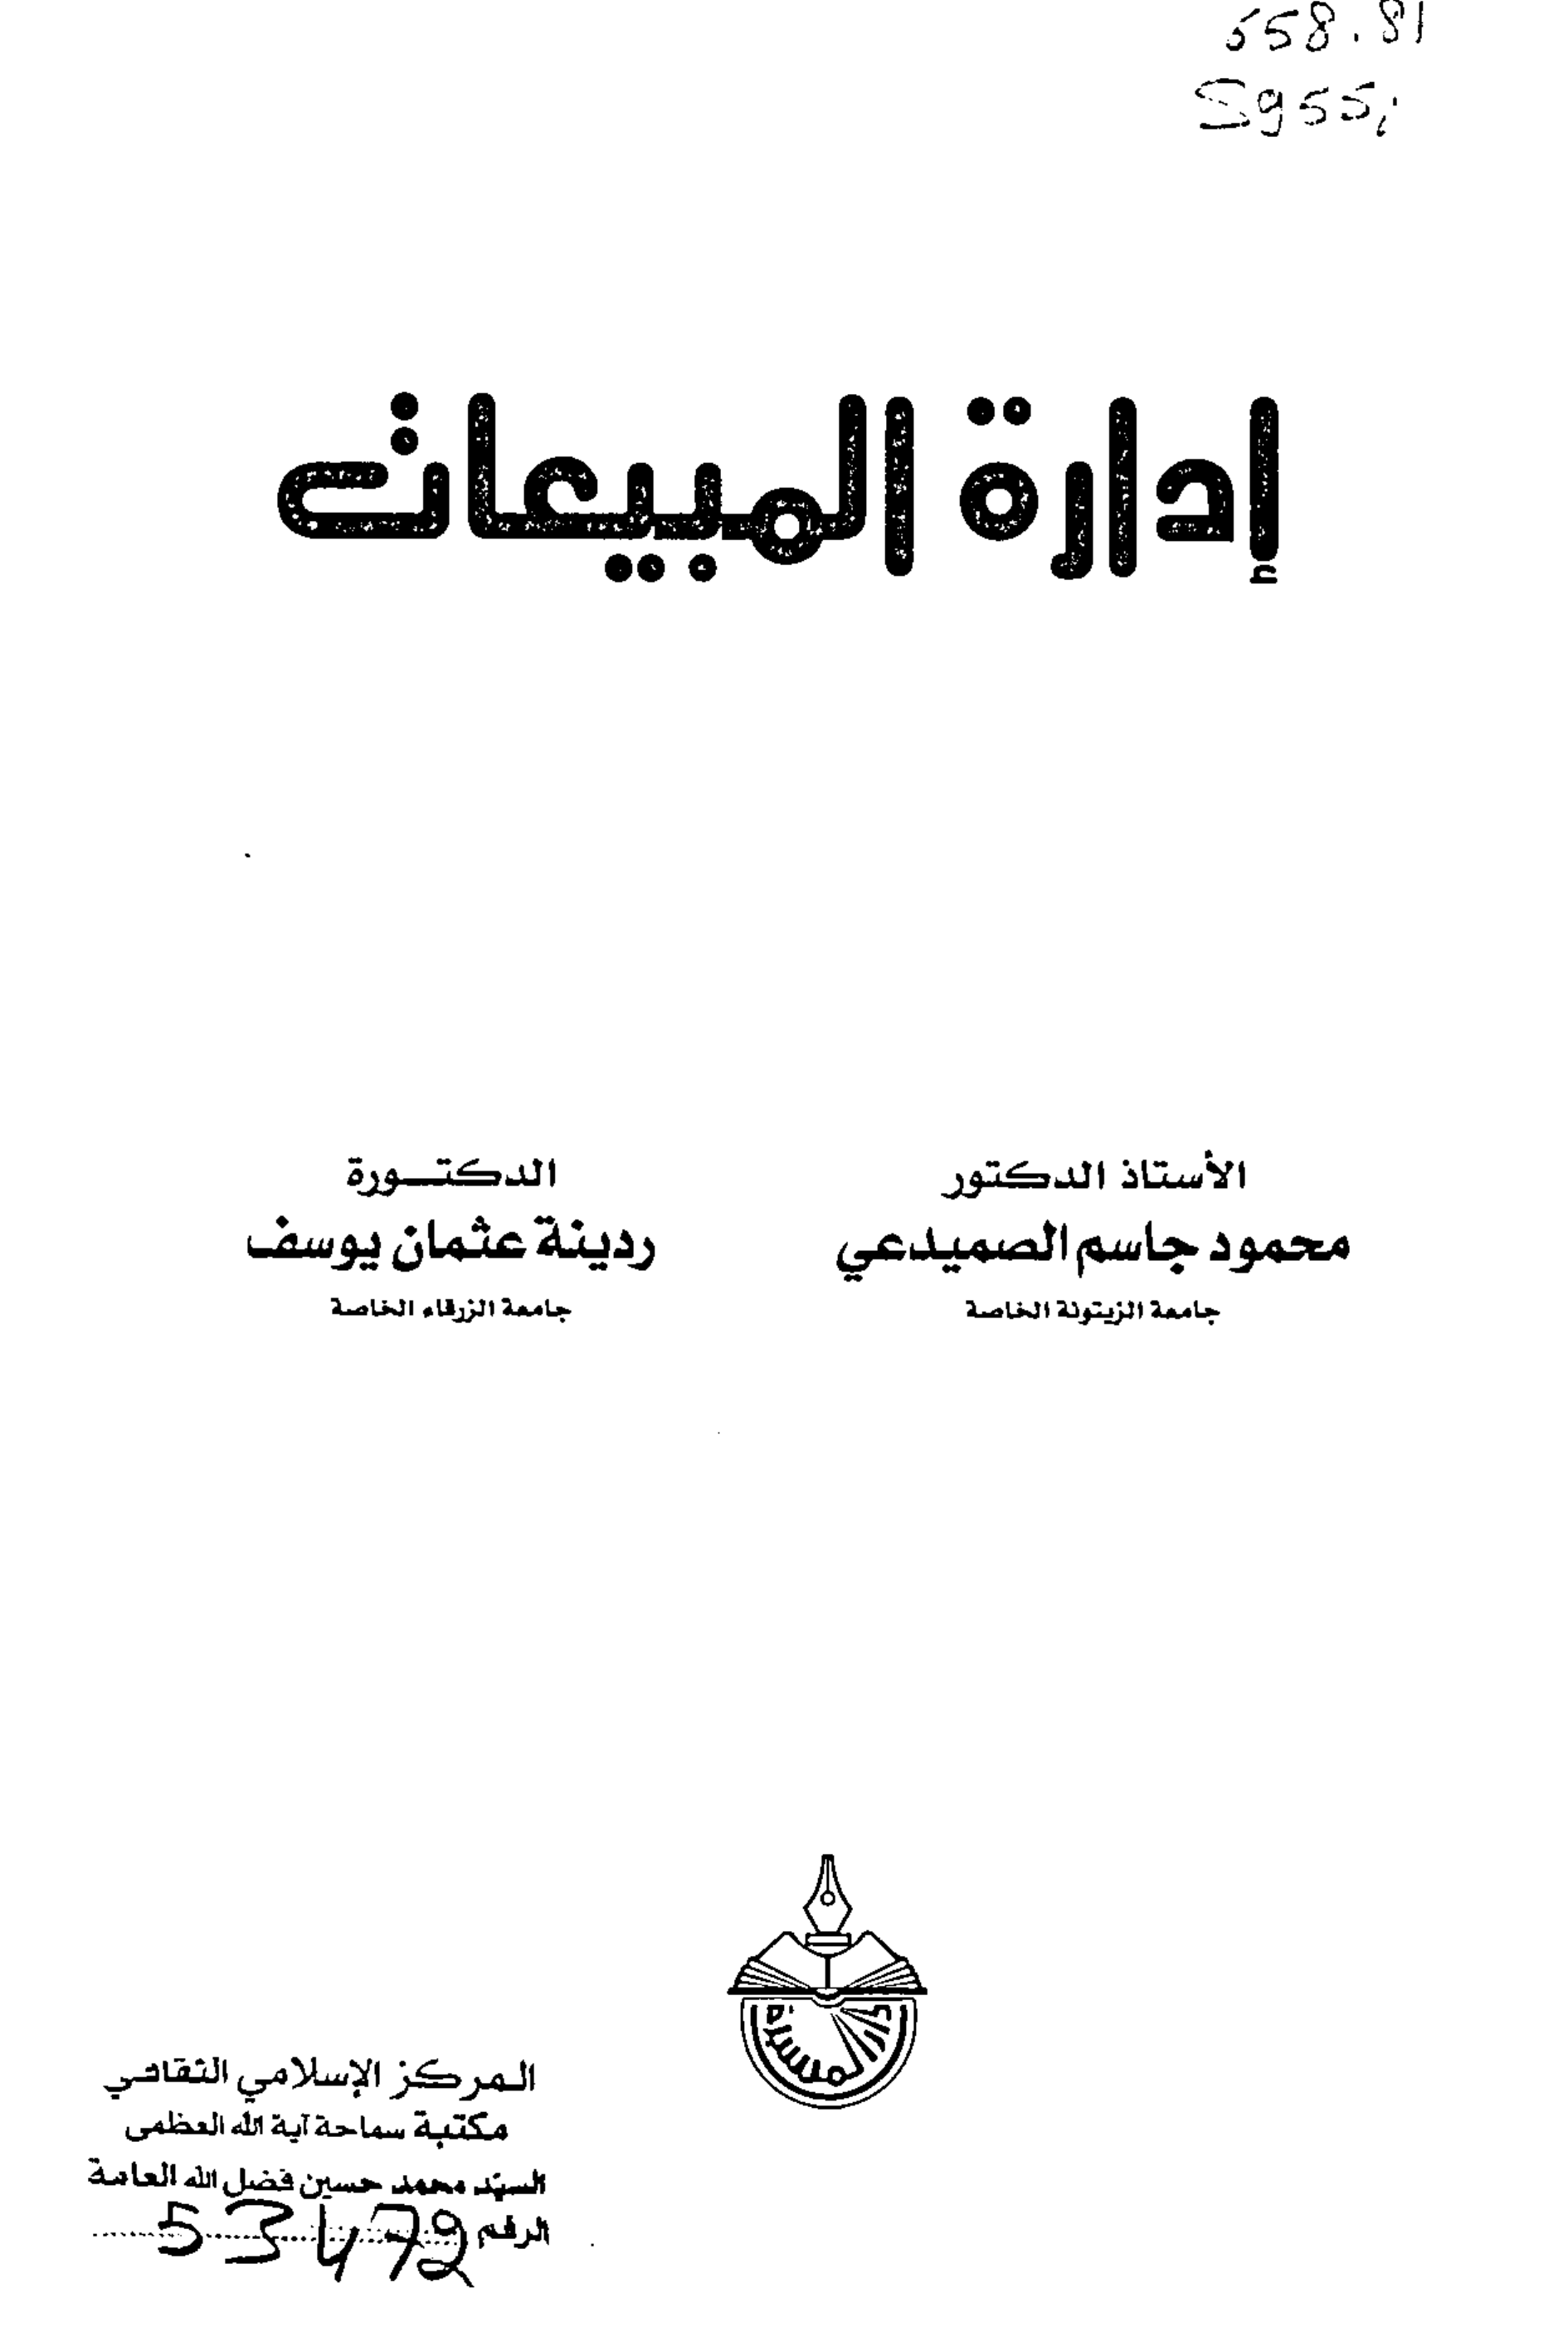 658.81
Sg55i
إدارة المبيعات
الأستاذ الدكتور
محمود جاسم الصميدعي
جامعة الزيتونة الخاصة
الدكتـــورة
ردينة عثمان يوسف
جامعة الزرقاء الخاصة
دار المسيرة
المركز الإسلامي الثقافي
مكتبة سماحة آية الله العظمى
السيّد محمد حسين فضل الله العامة
الرقم